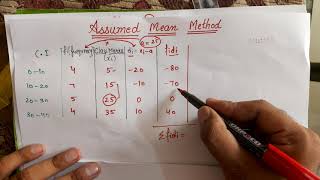 Assumed Mean Method
a=25
C.I f(frequency) Class Marks (xi) di=xi-a fidi
0-10 4 5 -20 -80
10-20 7 15 -10 -70
20-30 5 25 0 0
30-40 4 35 10 40
Σfidi=